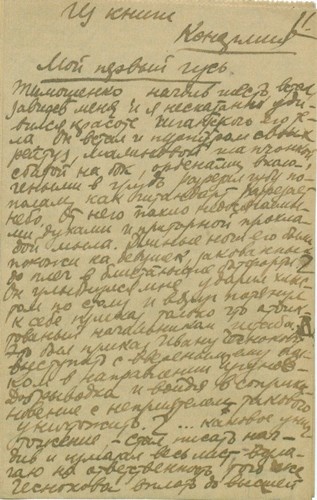 Из книги
Конармия
Мой первый гусь.
Тимошенко начдив шесть встал
завидев меня и я несказанно уди-
вился красоте гигантского его те-
ла. Он встал и пурпуром своих
рейтуз, малиновой шапчонкой
сбитой на бок, орденами вкола-
ченными в грудь разделил избу по-
полам, как штандарт разрезает
небо. От него пахло недосягаемы-
ми духами и приторной прохла-
дой мыла. Длинные ноги его были
похожи на девушек, закованных
до плеч в блистающие ботфорты
Он улыбнулся мне, ударил хлыс-
том по столу и вдруг потянул
к себе приказ только что
отдиктованный начальником штаба
Это был приказ Ивану Чеснокову
выступить с вверенным ему пол-
ком в направлении Чугунов-
Добрыводка и войдя в соприкос-
новение с неприятелем такового
уничтожить. 2 ... каковое унич-
тожение – стал писать нач-
див и измазал весь лист – возла-
гаю на ответственность того же
Чеснокова вплоть до высшей